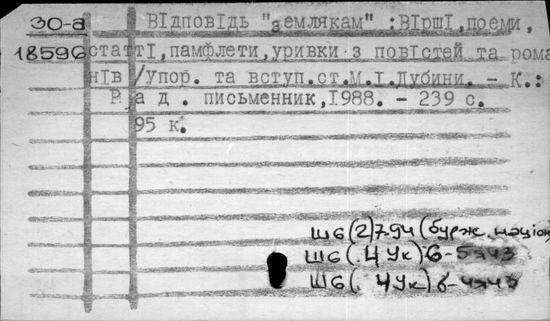 30-а ВІДПОВІДЬ "землякам" :Вірші,поеми,
18596 статті,памфлети,уривки з повістей та рома
нів /Упор. та вступ.ст.М.І.Дубини. - К.:
Рад. письменник,1988. - 239 с.
95 к.
Ш6(2)794 (бурж. націон
Ш6(.4Ук)6-5943
Ш6(.4Ук)6-4943